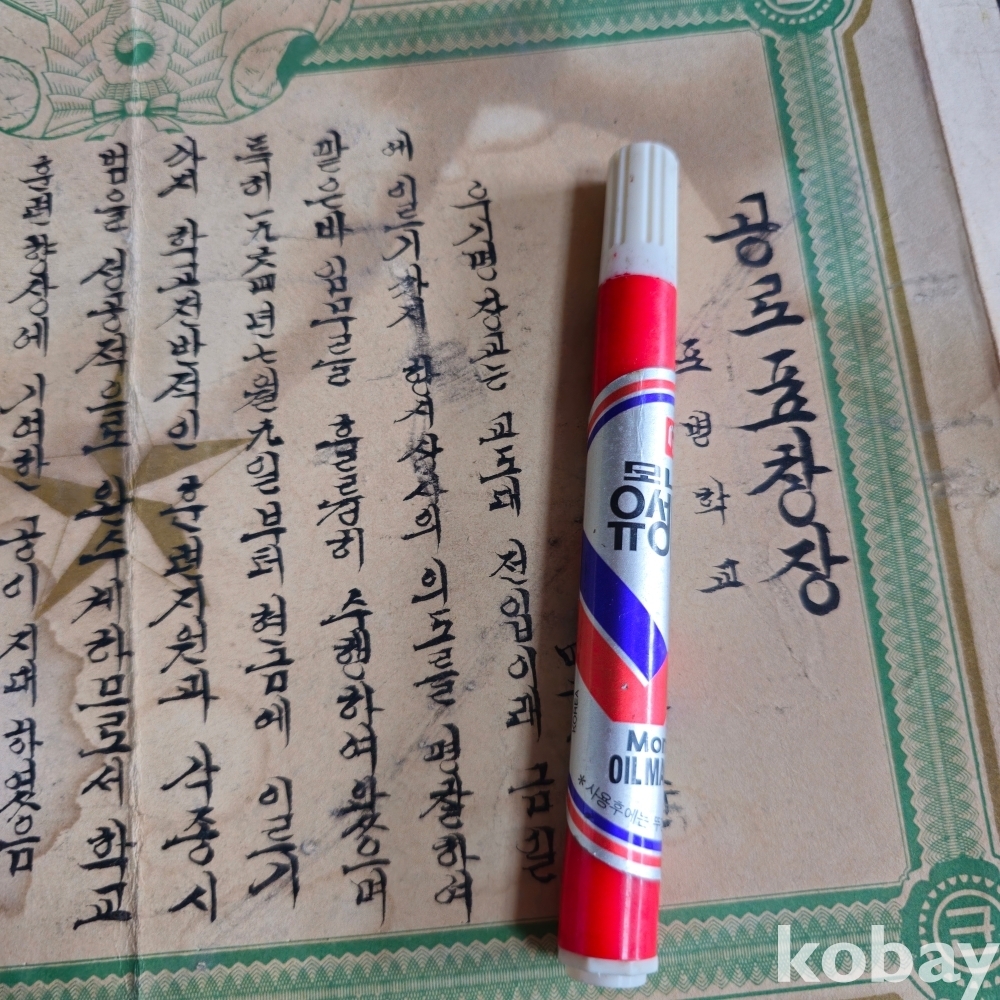 공로표창장
표 병 학 교
우기명 장교는 교도대 전입이래 금일
에 이르기까지 항시 상사의 의도를 명찰하여
맡은바 임무를 훌륭히 수행하여 왔으며
특히 一九六四년 七월 九일부터 현금에 이르기
까지 학교전반적인 훈련지원과 각종 시
범을 성공적으로 완수케 하므로서 학교
훈련향상에 기여한 공이 지대하였음
모나
유성
Mon
OIL MA
*사용후에는
KOREA
kobay